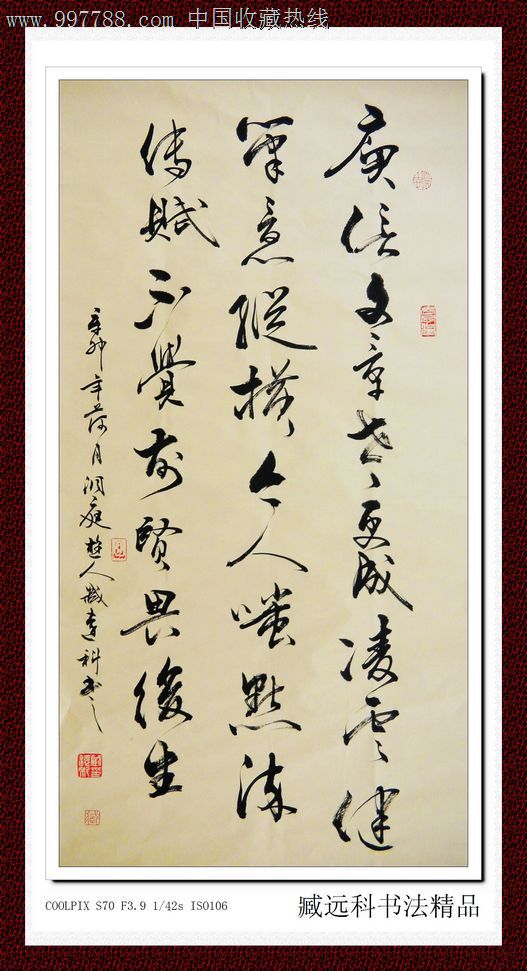 www.997788.com 中国收藏热线
庾信文章老更成凌雲健
筆意縱橫今人嗤點流
傳賦不覺前賢畏後生
辛卯年荷月洞庭楚人臧遠科書之
COOLPIX S70 F3.9 1/42s ISO106
臧远科书法精品